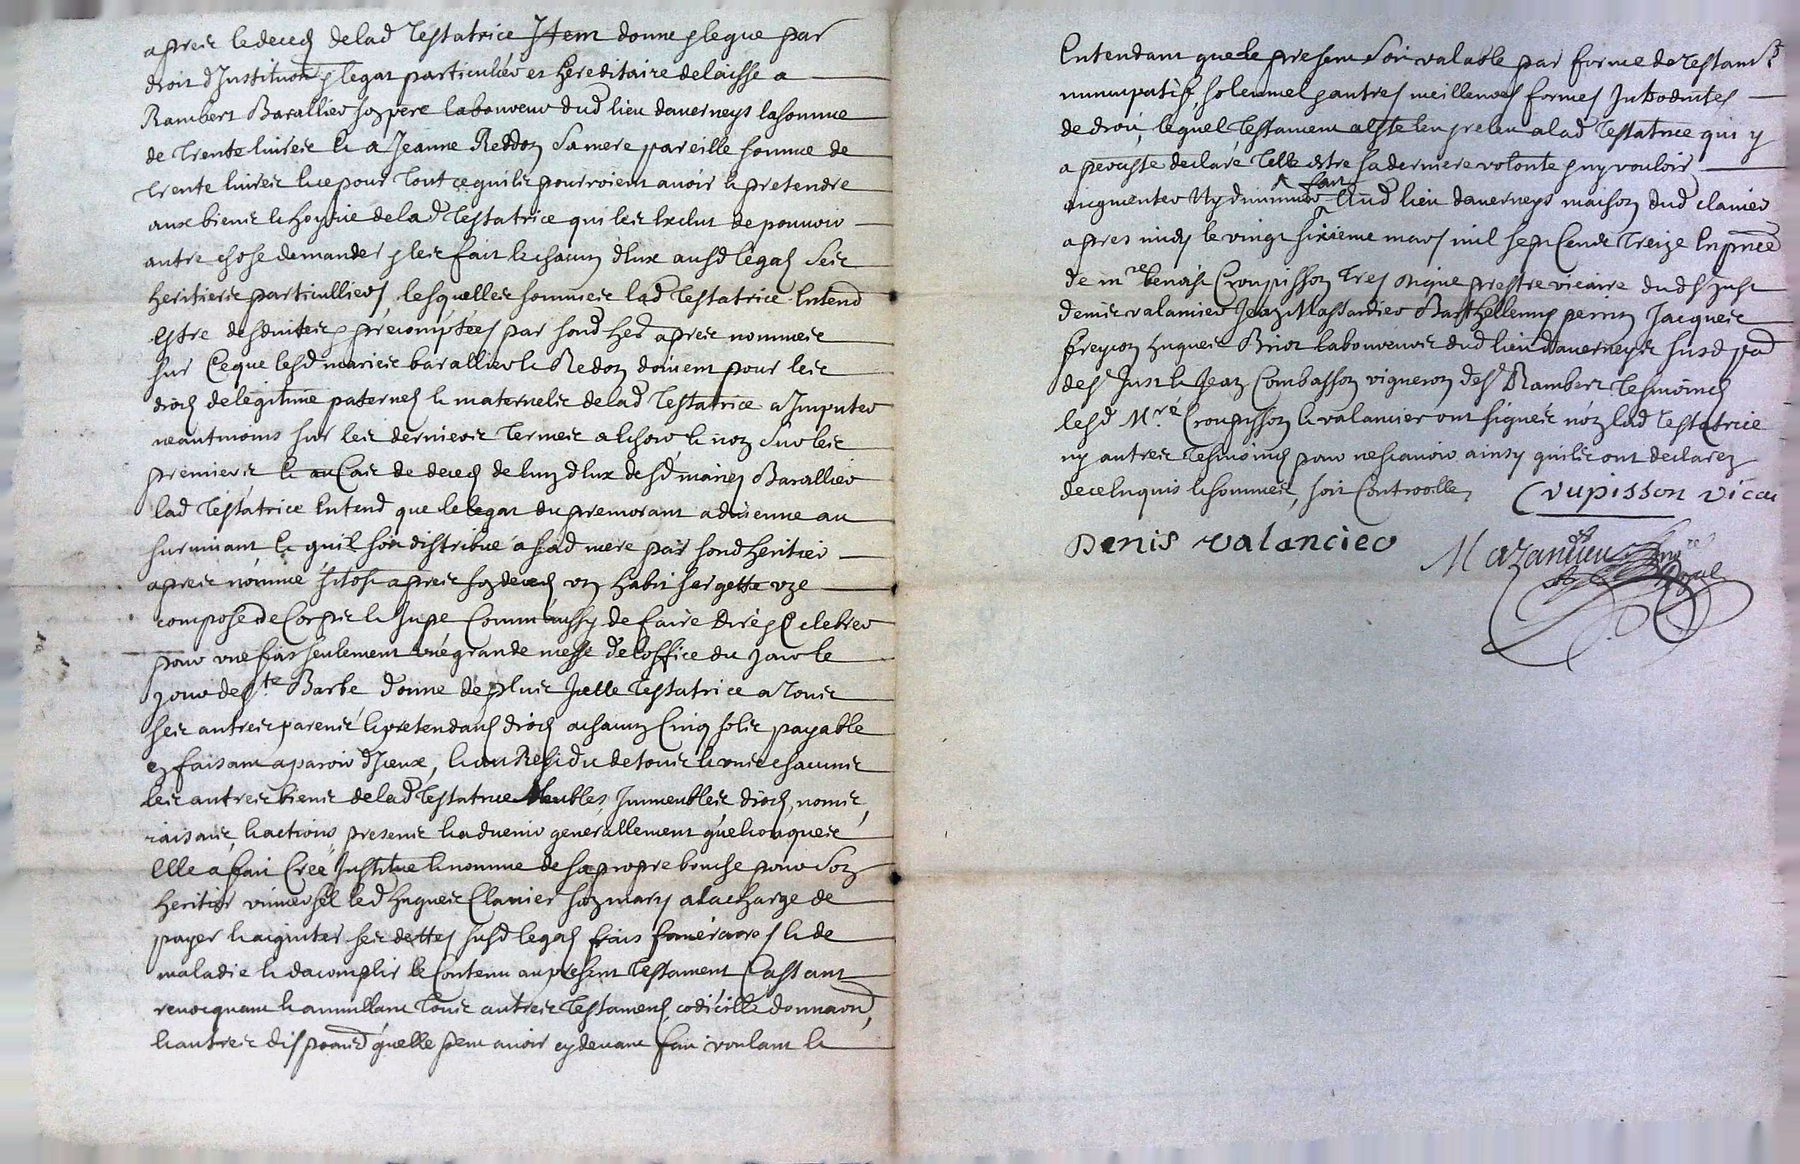 apres le deces de lad testatrice Item donne & legue par
droit d'Institution & legat particulier et hereditaire delaisse a
Rambert Barallier son pere laboureur dud lieu daverneys la somme
de trente livres & a Jeanne Reddon sa mere pareille somme de
trente livres & ce pour tout ce quils pourroient avoir & pretendre
aux biens & hoyrie de lad testatrice qui les exclut de pouvoir
autre chose demander & les fait & chacun deux ausd legats ses
heritiers particulliers lesquelles sommes lad testatrice entend
estre desduites & precomptées par sond her apres nommer
sur ce que lesd maries barallier & Redon doivent pour les
droits de legitime paternel & maternelle de lad testatrice a Imputer
neantmoins sur les derniers termes a eschoir & non sur les
premiers & au cas de deces de lun deux desd maries Barallier
lad testatrice entend que le legat du premourant advienne au
survivant & quil soit distribué a sad mere par sond heritier
apres nommé sitost apres son deces un habit sergette uze
composé de Corps & Jupe Comm aussy de faire dire & celebrer
pour une fois seulement une grande messe de loffice du jour le
jour de Ste Barbe donne de plus Icelle testatrice a tous
ses autres parens & pretendants droits a chacun Cinq sols payable
en faisant aparoir d'Iceux, & au Residu de tous & uns chacuns
les autres biens de lad testatrice Meubles Immeubles droits, noms,
raisons, & actions presens & advenir generallement quelconques
Elle a fait Creé Institué & nommé de sa propre bouche pour son
heritier universel led hugues Clavier son mary a la charge de
payer & aquiter ses dettes susd legats frais funeraires & de
maladie & dacomplir le Contenu au present testament Cassant
revocquant & annullant tous autres testaments codicille donnaons,
& autres disposaons quelle peut avoir cy devant fait voulant &
Entendant que le present soit valable par forme de testamt
nuncupatif, solennel & autres meilleures formes Introduites
de droit, lequel testament a este leu & releu a lad testatrice qui y
a percisté declaré telle estre sa derniere volonté & ny vouloir
augmenter ny diminuer fait Aud lieu daverneys maison dud clavier
apres midy le vingt sixieme mars mil sept Cents treize En pnce
de mre benoist Croupisson prestre vicaire dud st Just
denis valancier Jean Massardier Barthellemy perrin Jacques
freycon hugues Brior laboureurs dud lieu daverneys susd
de st Just & Jean Combasson vigneron de st Rambert tesmoins
lesd Mre Croupisson & valancier ont signés non lad testatrice
ny autres tesmoins pour ne scavoir ainsy quils ont declarez
de ce enquis & sommes, soit Controolle Crupisson vicai
Denis valancier
Mazandieu